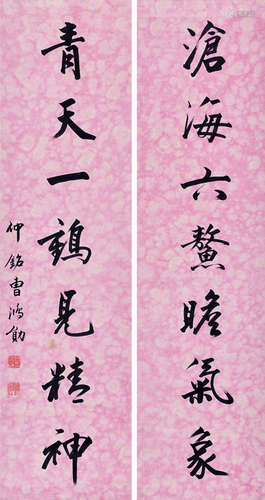 滄海六鰲瞻氣象
青天一鶴見精神
仲銘曹鴻勛